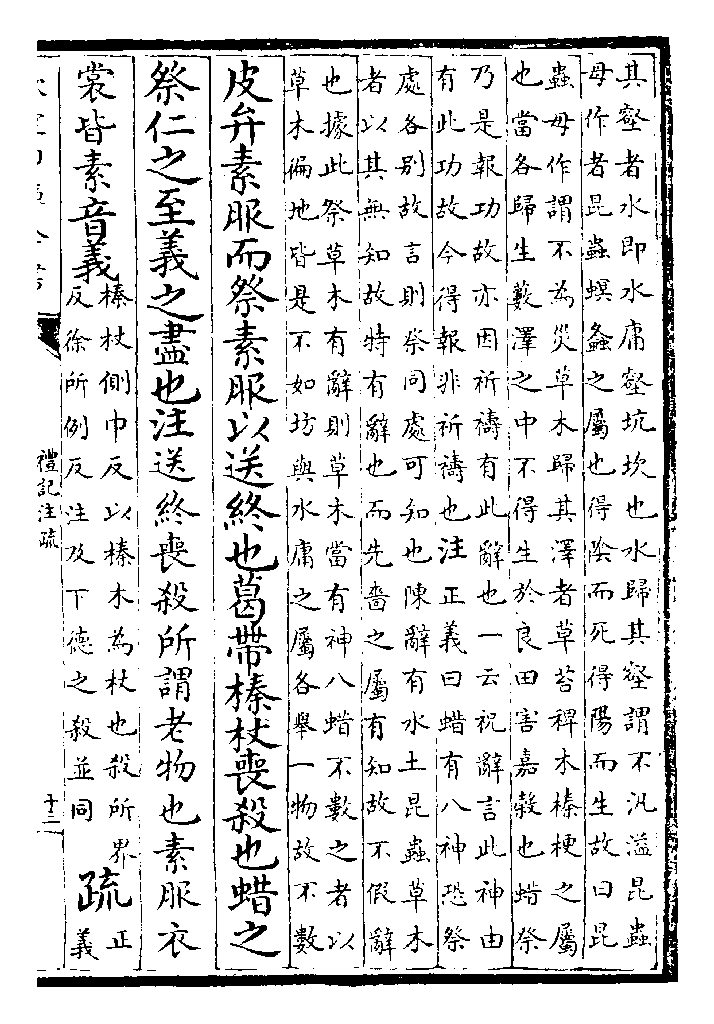 其壑者水即水庸壑坑坎也水歸其壑謂不汎溢昆蟲
毋作者昆蟲螟螽之屬也得陰而死得陽而生故曰昆
蟲毋作謂不為災草木歸其澤者草苔稗木榛梗之屬
也當各歸生藪澤之中不得生於良田害嘉穀也蜡祭
乃是報功故亦因祈禱有此辭也一云祝辭言此神由
有此功故今得報非祈禱也注正義曰蜡有八神恐祭
處各别故言則祭同處可知也陳辭有水土昆蟲草木
者以其無知故特有辭也而先嗇之屬有知故不假辭
也據此祭草木有辭則草木當有神八蜡不數之者以
草木徧地皆是不如坊與水庸之屬各舉一物故不數
皮弁素服而祭素服以送終也葛帶榛杖喪殺也蜡之
祭仁之至義之盡也注送終喪殺所謂老物也素服衣
裳皆素音義
榛杖側巾反以榛木為杖也殺所界
反徐所例反注及下德之殺並同
疏
正
義
禮記注疏
十三